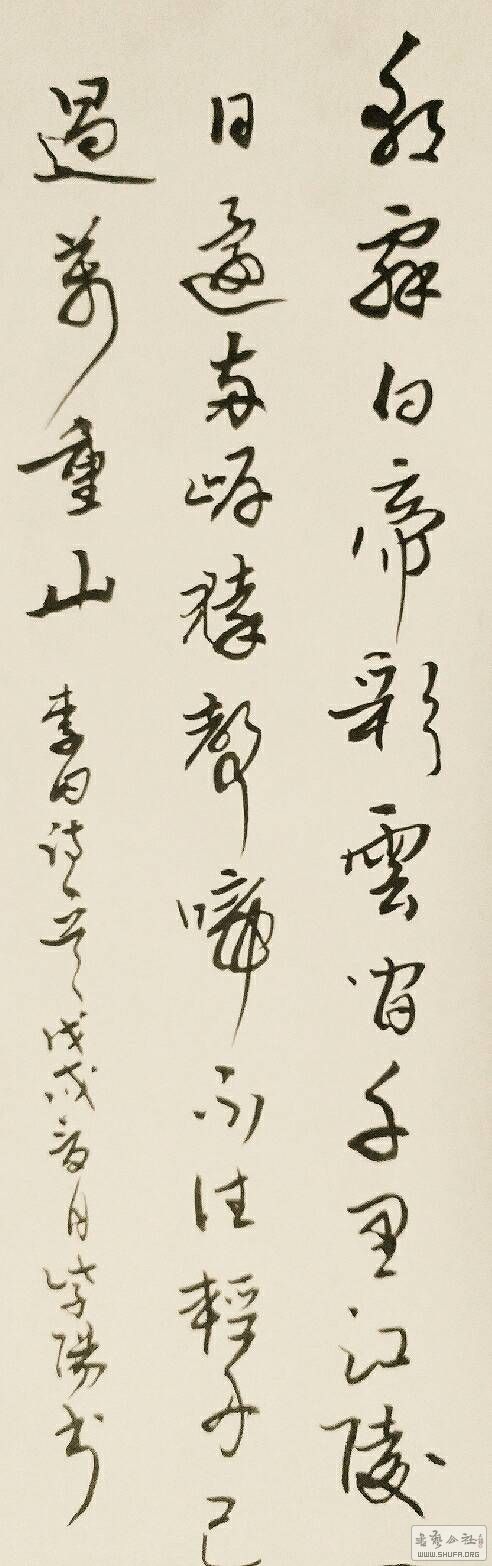 朝辭白帝彩雲間千里江陵一
日還兩岸猿聲啼不住輕舟已
過萬重山 李白詩一首 戊戌夏月紫陽書
書藝公社
WWW.SHUFA.ORG